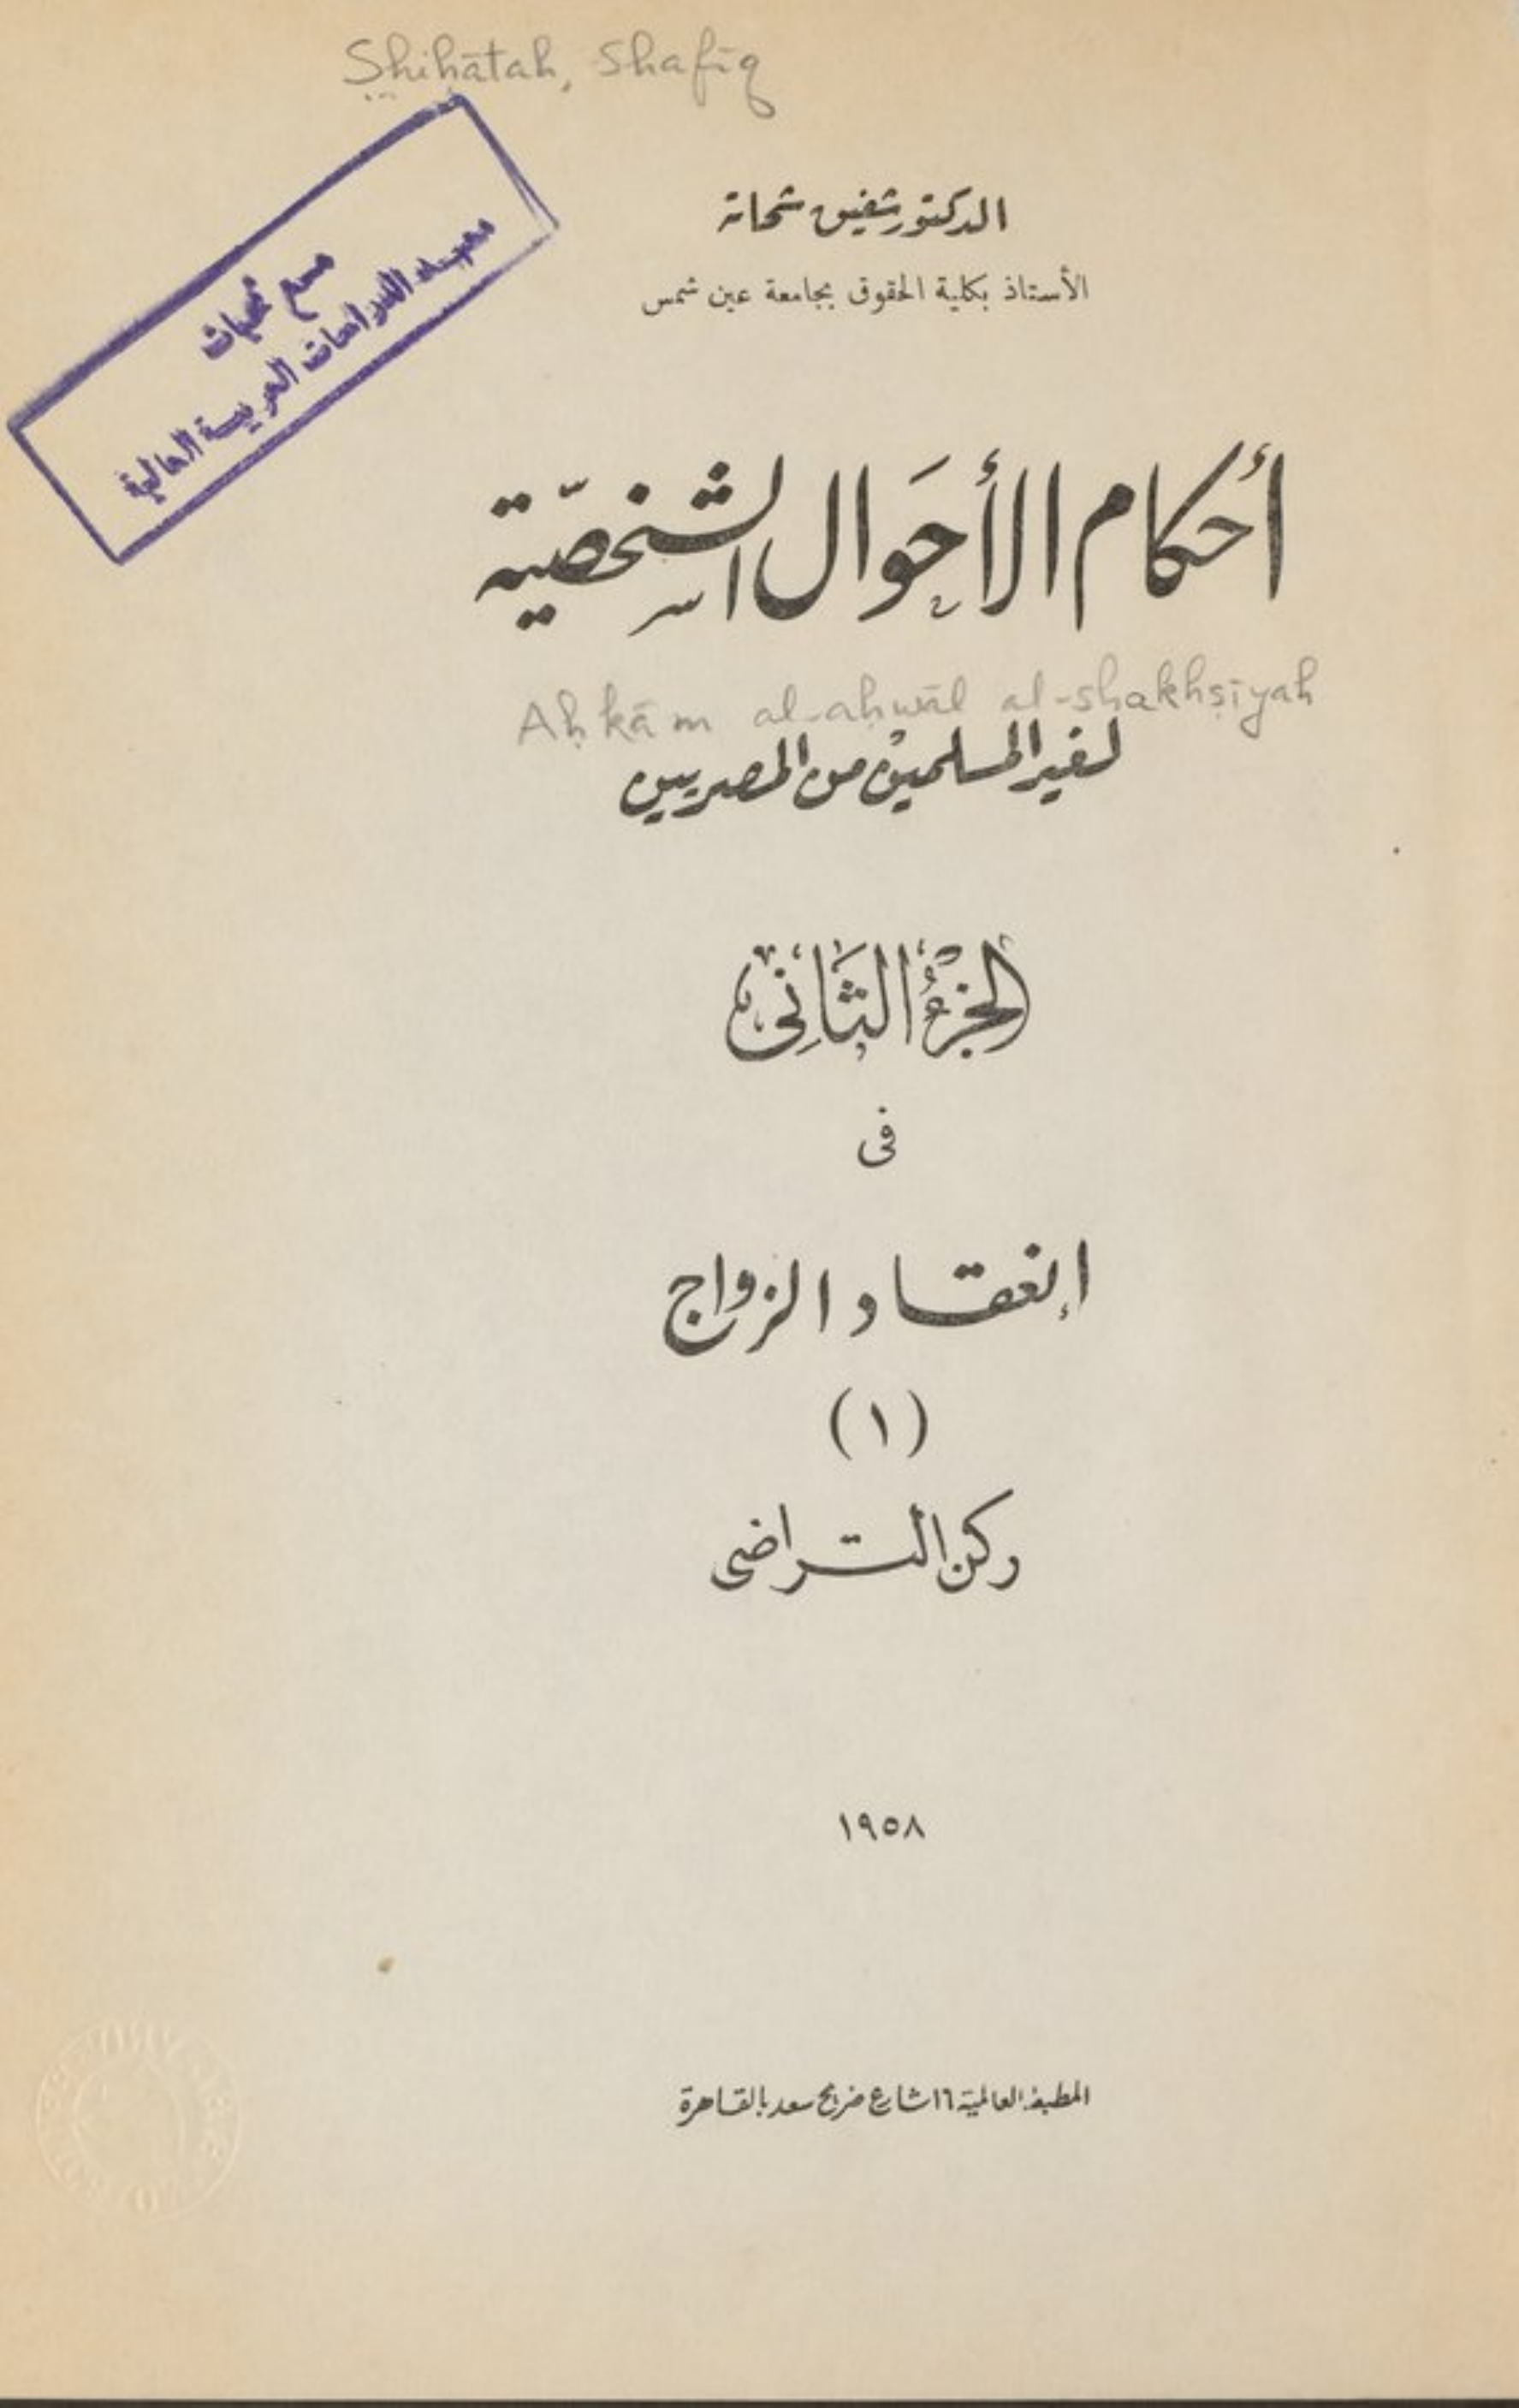 Shiḥātah, Shafīq
مع تحيات
معهد الدراسات العربية العالية
الدكتور شفيق شحاته
الأستاذ بكلية الحقوق بجامعة عين شمس
أحكام الأحوال الشخصيّة
Aḥkām al-aḥwāl al-shakhṣīyah
لغير المسلمين من المصريين
الجزءُ الثَانِى
فى
إنعقاد الزواج
(١)
ركن التراضى
١٩٥٨
المطبعة العالمية ١٦ شارع ضريح سعد بالقاهرة